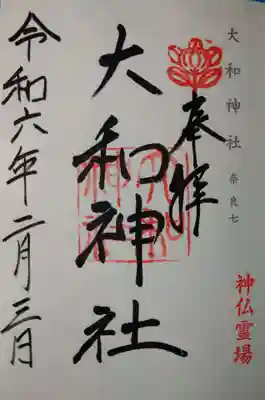 大和神社 奈良七
神仏霊場
奉拝
大和神社
令和六年二月三日